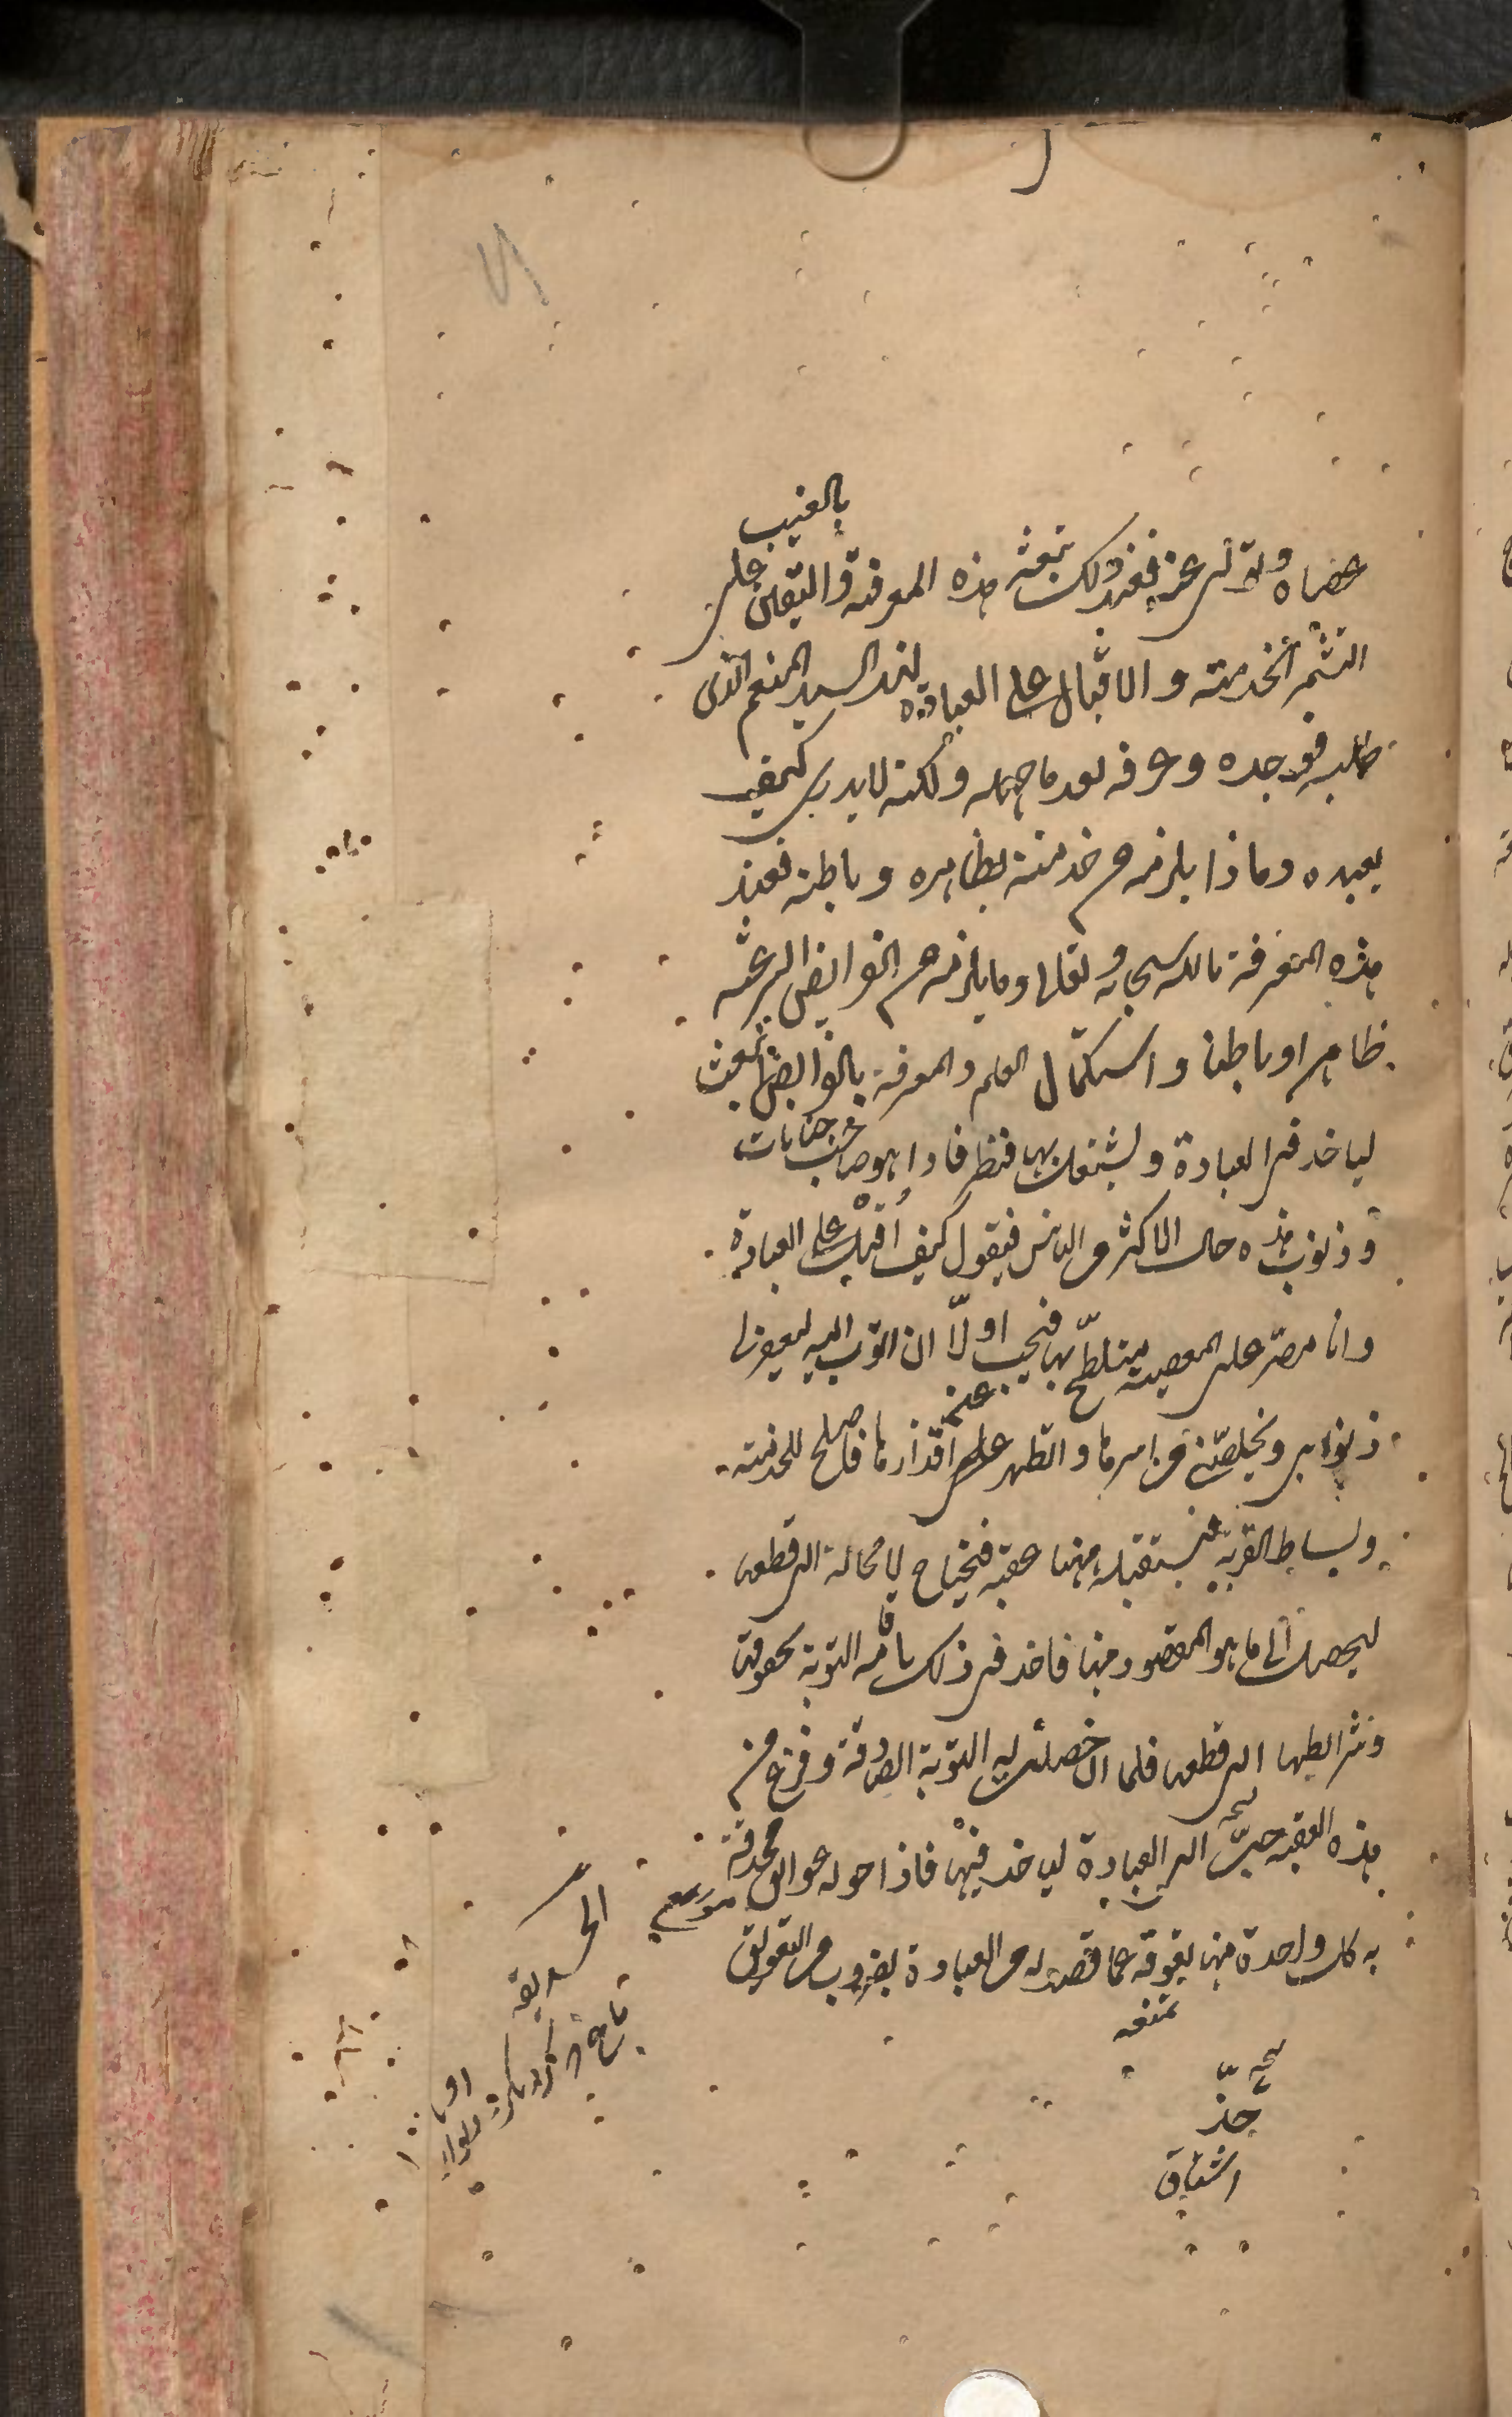 بالغيب
عصاه وتولى عنه فعند ذلك تبعثه هذه المعرفة واليقين على
التشمر لخدمته والاقبال على العبادة لهذا السيد المنعم الذى
طلبه فوجده وعرفه بعد ما جهله ولكنه لا يدرى كيف
يعبده وماذا يلزمه من خدمته بظاهره وباطنه فبعد
هذه المعرفة بالله سبحانه وتعالى وما يلزمه من الفرايض الشرعية
ظاهرا وباطنا واستكمال العلم والمعرفة بالفرايض انبعث
لياخذ فى العبادة ويشتغل بها فنظر فاذا هو صاحب جنايات
وذنوب هذه حال الاكثر من الناس فيقول كيف اقبل على العبادة
وانا مصر على المعصية متلطخ بها فيجب اولا ان اتوب اليه ليغفر لى
ذنوبى ويخلصنى من اسرها واتطهر من اقذارها فاصلح للخدمة
عنه
وبساط القربة فيستقبله ههنا عقبة فيحتاج لا محالة الى قطعها
ليصل الى ما هو المقصود منها فاخذ فى ذلك باقامة التوبة بحقوقها
وشرائطها الى قطعها فلما ان حصلت له التوبة الصادقة وفرغ من
هذه العقبة حن الى العبادة لياخذ فيها فاذا حوله عوائق محدقة
به كل واحدة منها يعوقه عما قصد له من العبادة بضرب من التعويق
تمنعه
حنّ
اشتاق